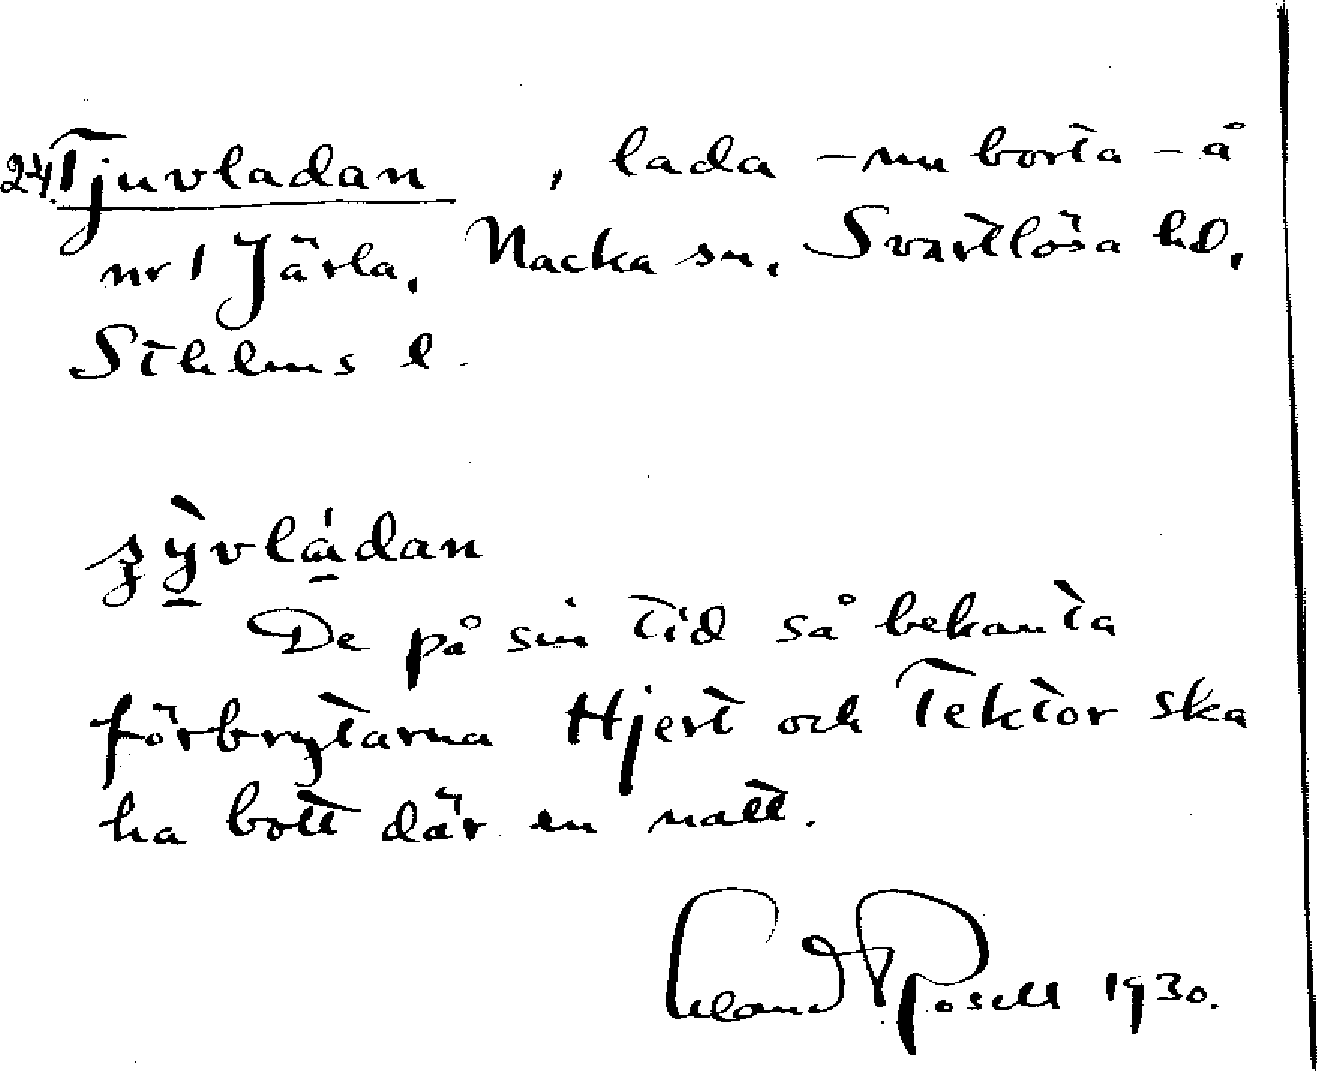 24. Tjuvladan, lada – nu borta – å
nr 1 Järla, Nacka sn, Svartlösa hd,
Sthlms l.
De på sin tid så bekanta
förbrytarna Hjert och Tektor ska
ha bott där en natt.
Rosell 1930.